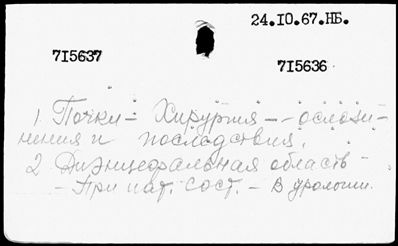 24.10.67.НБ.
715637
715636
1 Почки - Хирургия - - ослож-
нения и последствия.
2 Диэнцефральная область -
- При пат. сост. - В урологии.